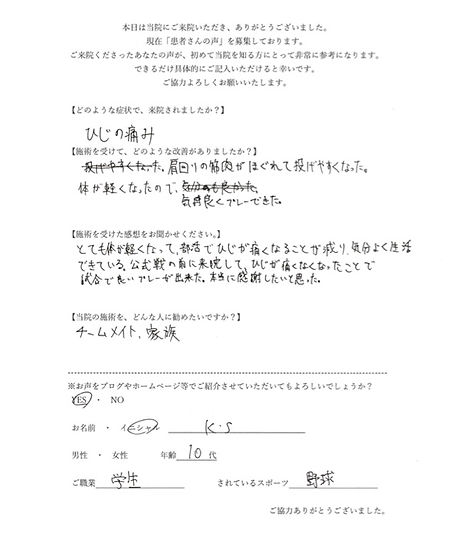 本日は当院にご来院いただき、ありがとうございました。
現在「患者さんの声」を募集しております。
ご来院くださったあなたの声が、初めて当院を知る方にとって非常に参考になります。
できるだけ具体的にご記入いただけると幸いです。
ご協力よろしくお願いいたします。
【どのような症状で、来院されましたか？】
ひじの痛み
【施術を受けて、どのような改善がありましたか？】
投げやすくなった。肩回りの筋肉がほぐれて投げやすくなった。
体が軽くなったので、気分のも良かった。
気持良くプレーできた。
【施術を受けた感想をお聞かせください。】
とても体が軽くなって、部活でひじが痛くなることが減り、気分よく生活
できている。公式戦の前に来院して、ひじが痛くなくなったことで
試合で良いプレーが出来た。本当に感謝したいと思った。
【当院の施術を、どんな人に勧めたいですか？】
チームメイト、家族
※お声をブログやホームページ等でご紹介させていただいてもよろしいでしょうか？
YES ・ NO
お名前 ・ イニシャル K・S
男性 ・ 女性 年齢 10 代
ご職業 学生 されているスポーツ 野球
ご協力ありがとうございました。